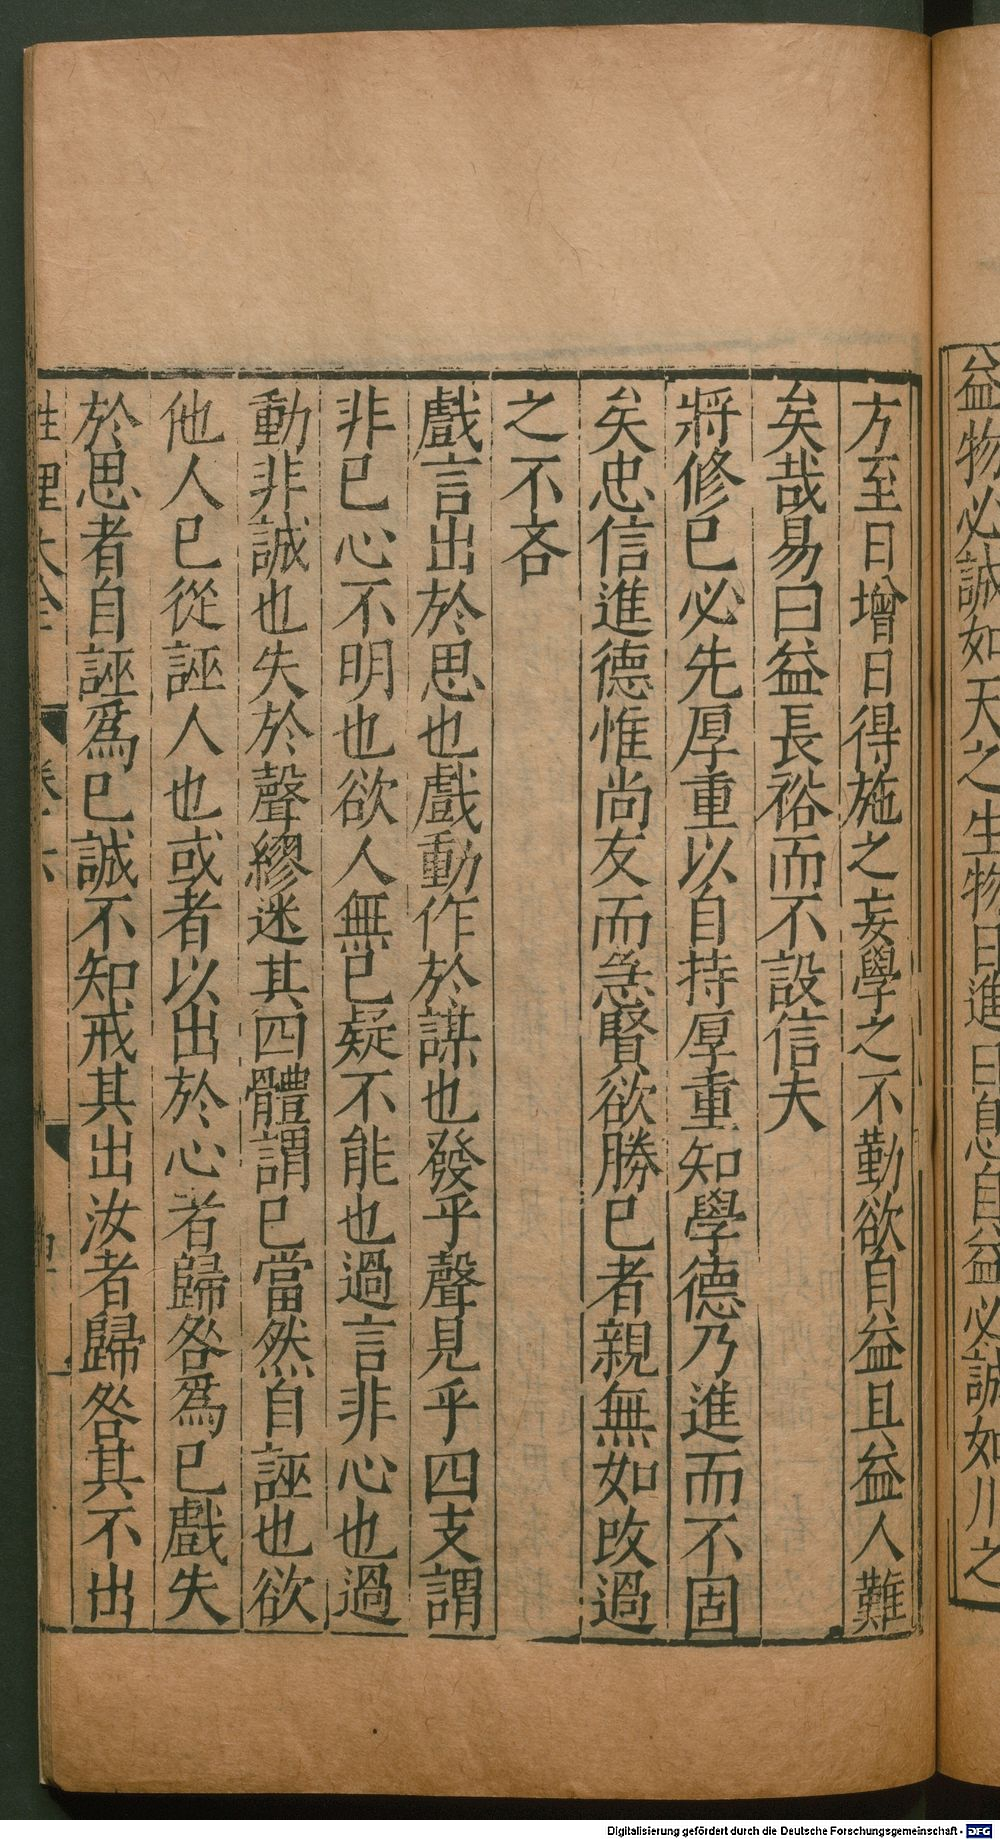 益物必誠如天之生物日進日息自益必誠如川之
方至日增日得施之妄學之不勤欲自益且益人難
矣哉易曰益長裕而不設信夫
將修已必先厚重以自持厚重知學德乃進而不固
矣忠信進德惟尚友而急賢欲勝已者親無如改過
之不吝
戲言出於思也戲動作於謀也發乎聲見乎四支謂
非已心不明也欲人無已疑不能也過言非心也過
動非誠也失於聲繆迷其四體謂已當然自誣也欲
他人已從誣人也或者以出於心者歸咎爲已戲失
於思者自誣爲已誠不知戒其出汝者歸咎其不出
性理大全 卷之六
Digitalisierung gefördert durch die Deutsche Forschungsgemeinschaft - DFG